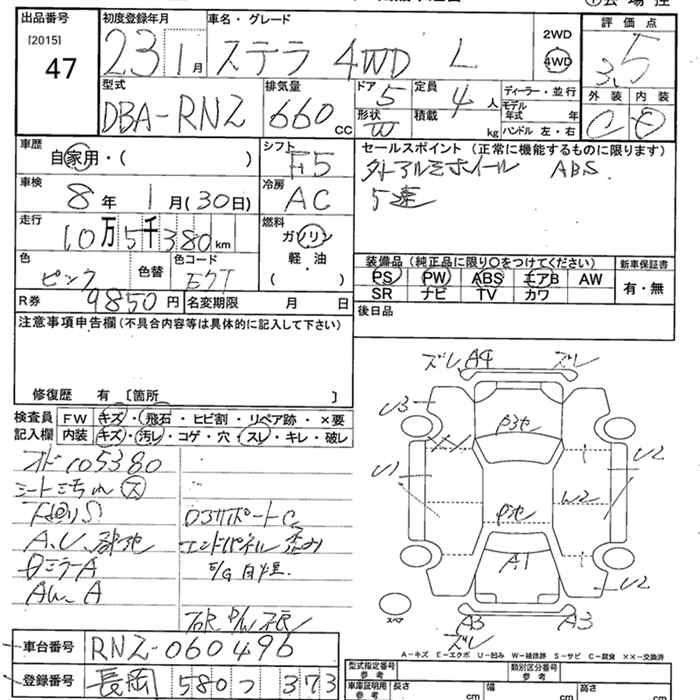 出品番号 初度登録年月 車名・グレード 2WD 評価点
[2015] 47 23年1月 ステラ 4WD L 4WD 3.5
型式 排気量 ドア 定員 ディーラー・並行 外装 内装
DBA-RNZ 660cc 5 4人 モデル年式 年 C
形状 W 積載 kg ハンドル 左・右
車歴 自家用・( ) シフト F5 セールスポイント (正常に機能するものに限ります)
車検 8年 1月(30日) 冷房 AC 外アルミホイール ABS.
5速
走行 10万5千380km 燃料 ガソリン 軽・油 ( )
色 ピンク 色替 色コード 装備品 (純正品に限り○をつけてください) 新車保証書
PS PW ABS エアB AW 有・無
SR ナビ TV カワ
R券 9850円 名変期限 月 日 後日品
注意事項申告欄(不具合内容等は具体的に記入して下さい)
修復歴 有 [箇所 ]
検査員 FW キズ・飛石・ヒビ割・リペア跡・×要
記入欄 内装 キズ・汚レ・コゲ・穴・スレ・キレ・破レ
105380
シート ス
ミラーA
エンドパネル 歪み
E/G
ズレ A4 ズレ
U3 U1 U2 W2 A1 U2
A3 A3
ズレ
スペア
A-キズ E-エクボ U-凹み W-補修跡 S-サビ C-腐食 ××-交換済
車台番号 RNZ-060496
登録番号 長岡 580 つ 373
型式指定番号 参考 類別区分番号 参考
車庫証明用 参考 長さ cm 幅 cm 高さ cm